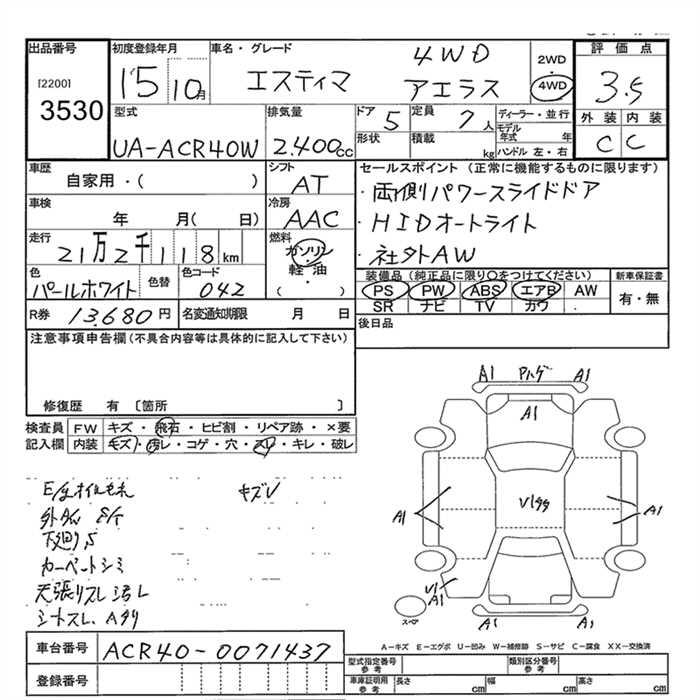 出品番号
[2200]
3530
初度登録年月
15 10月
車名・グレード
4WD
エスティマ アエラス
2WD
4WD
評価点
3.5
外装 内装
C C
型式
UA-ACR40W
排気量
2.400cc
ドア 5
定員 7人
形状
積載 kg
ディーラー・並行
モデル年式 年
ハンドル 左・右
車歴
自家用・( )
シフト
AT
車検
年 月( 日)
冷房
AAC
走行
21万2千118km
燃料
ガソリン
軽・油
( )
色
パールホワイト
色替
色コード
042
R券 13.680円
名変通知期限 月 日
セールスポイント (正常に機能するものに限ります)
・両側パワースライドドア
・HIDオートライト
・社外AW
装備品 (純正品に限り○をつけてください)
PS PW ABS エアB AW
SR ナビ TV カワ .
新車保証書
有・無
後日品
注意事項申告欄(不具合内容等は具体的に記入して下さい)
修復歴 有 〔箇所 〕
検査員記入欄
FW キズ・飛石・ヒビ割・リペア跡・×要
内装 キズ・汚レ・コゲ・穴・スレ・キレ・破レ
キズレ
下廻り
カーペートシミ
天張リスレ 汚レ
シートスレ、
A1
A1
A1
A1
A1
A1
スペア
A-キズ E-エグボ U-凹み W-補修跡 S-サビ C-腐食 XX-交換済
車台番号
ACR40-0071437
登録番号
型式指定番号 参考
類別区分番号 参考
車庫証明用 参考
長さ cm
幅 cm
高さ cm